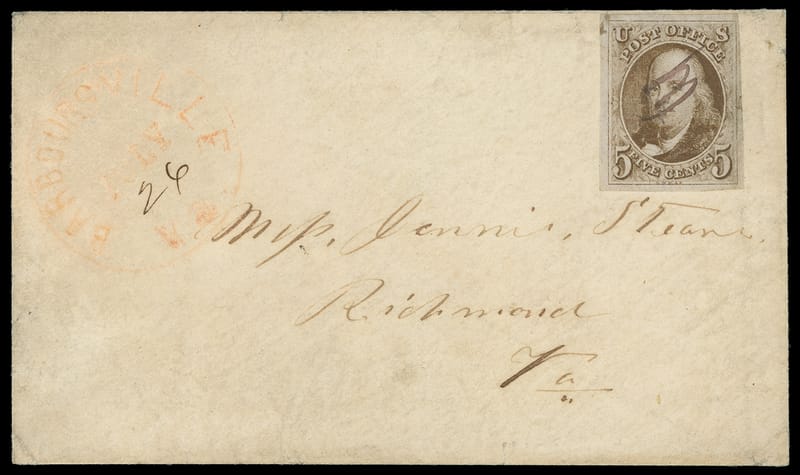 BARBOURSVILLE
JULY
VA
26
U S
POST OFFICE
5 FIVE CENTS 5
Miss. Jennie. Stearns.
Richmond
Va